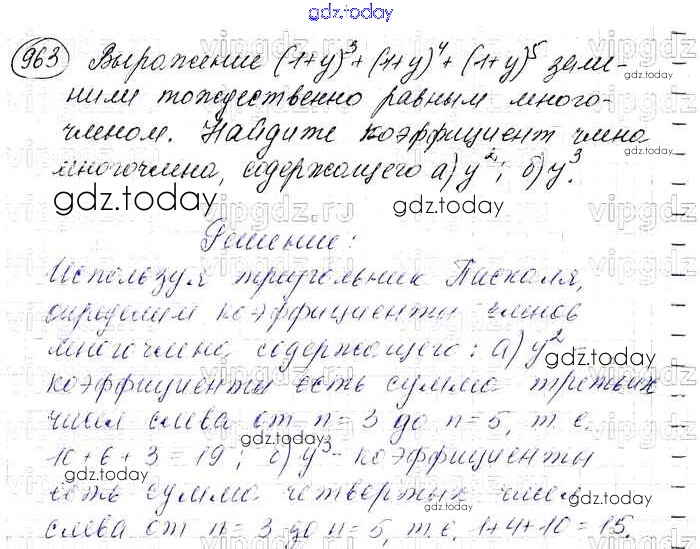 gdz.today
963 Выражение (1+y)³+(1+y)⁴+(1+y)⁵ заме-
gdz.today
нили тождественно равным много-
членом. Найдите коэффициент члена
gdz.today
многочлена, содержащего а) y²; б) y³.
gdz.today vipgdz.ru gdz.today vipgdz
Решение:
Используя треугольник Паскаля,
определим коэффициенты членов
многочлена, содержащего: а) y²
gdz.today
коэффициенты есть сумма третьих
чисел слева от n=3 до n=5, т.е.
gdz.today
10+6+3=19; б) y³ - коэффициенты
gdz.today
есть сумма четвертых чисел
слева от n=3 до n=5, т.е. 1+4+10=15.
gdz.today